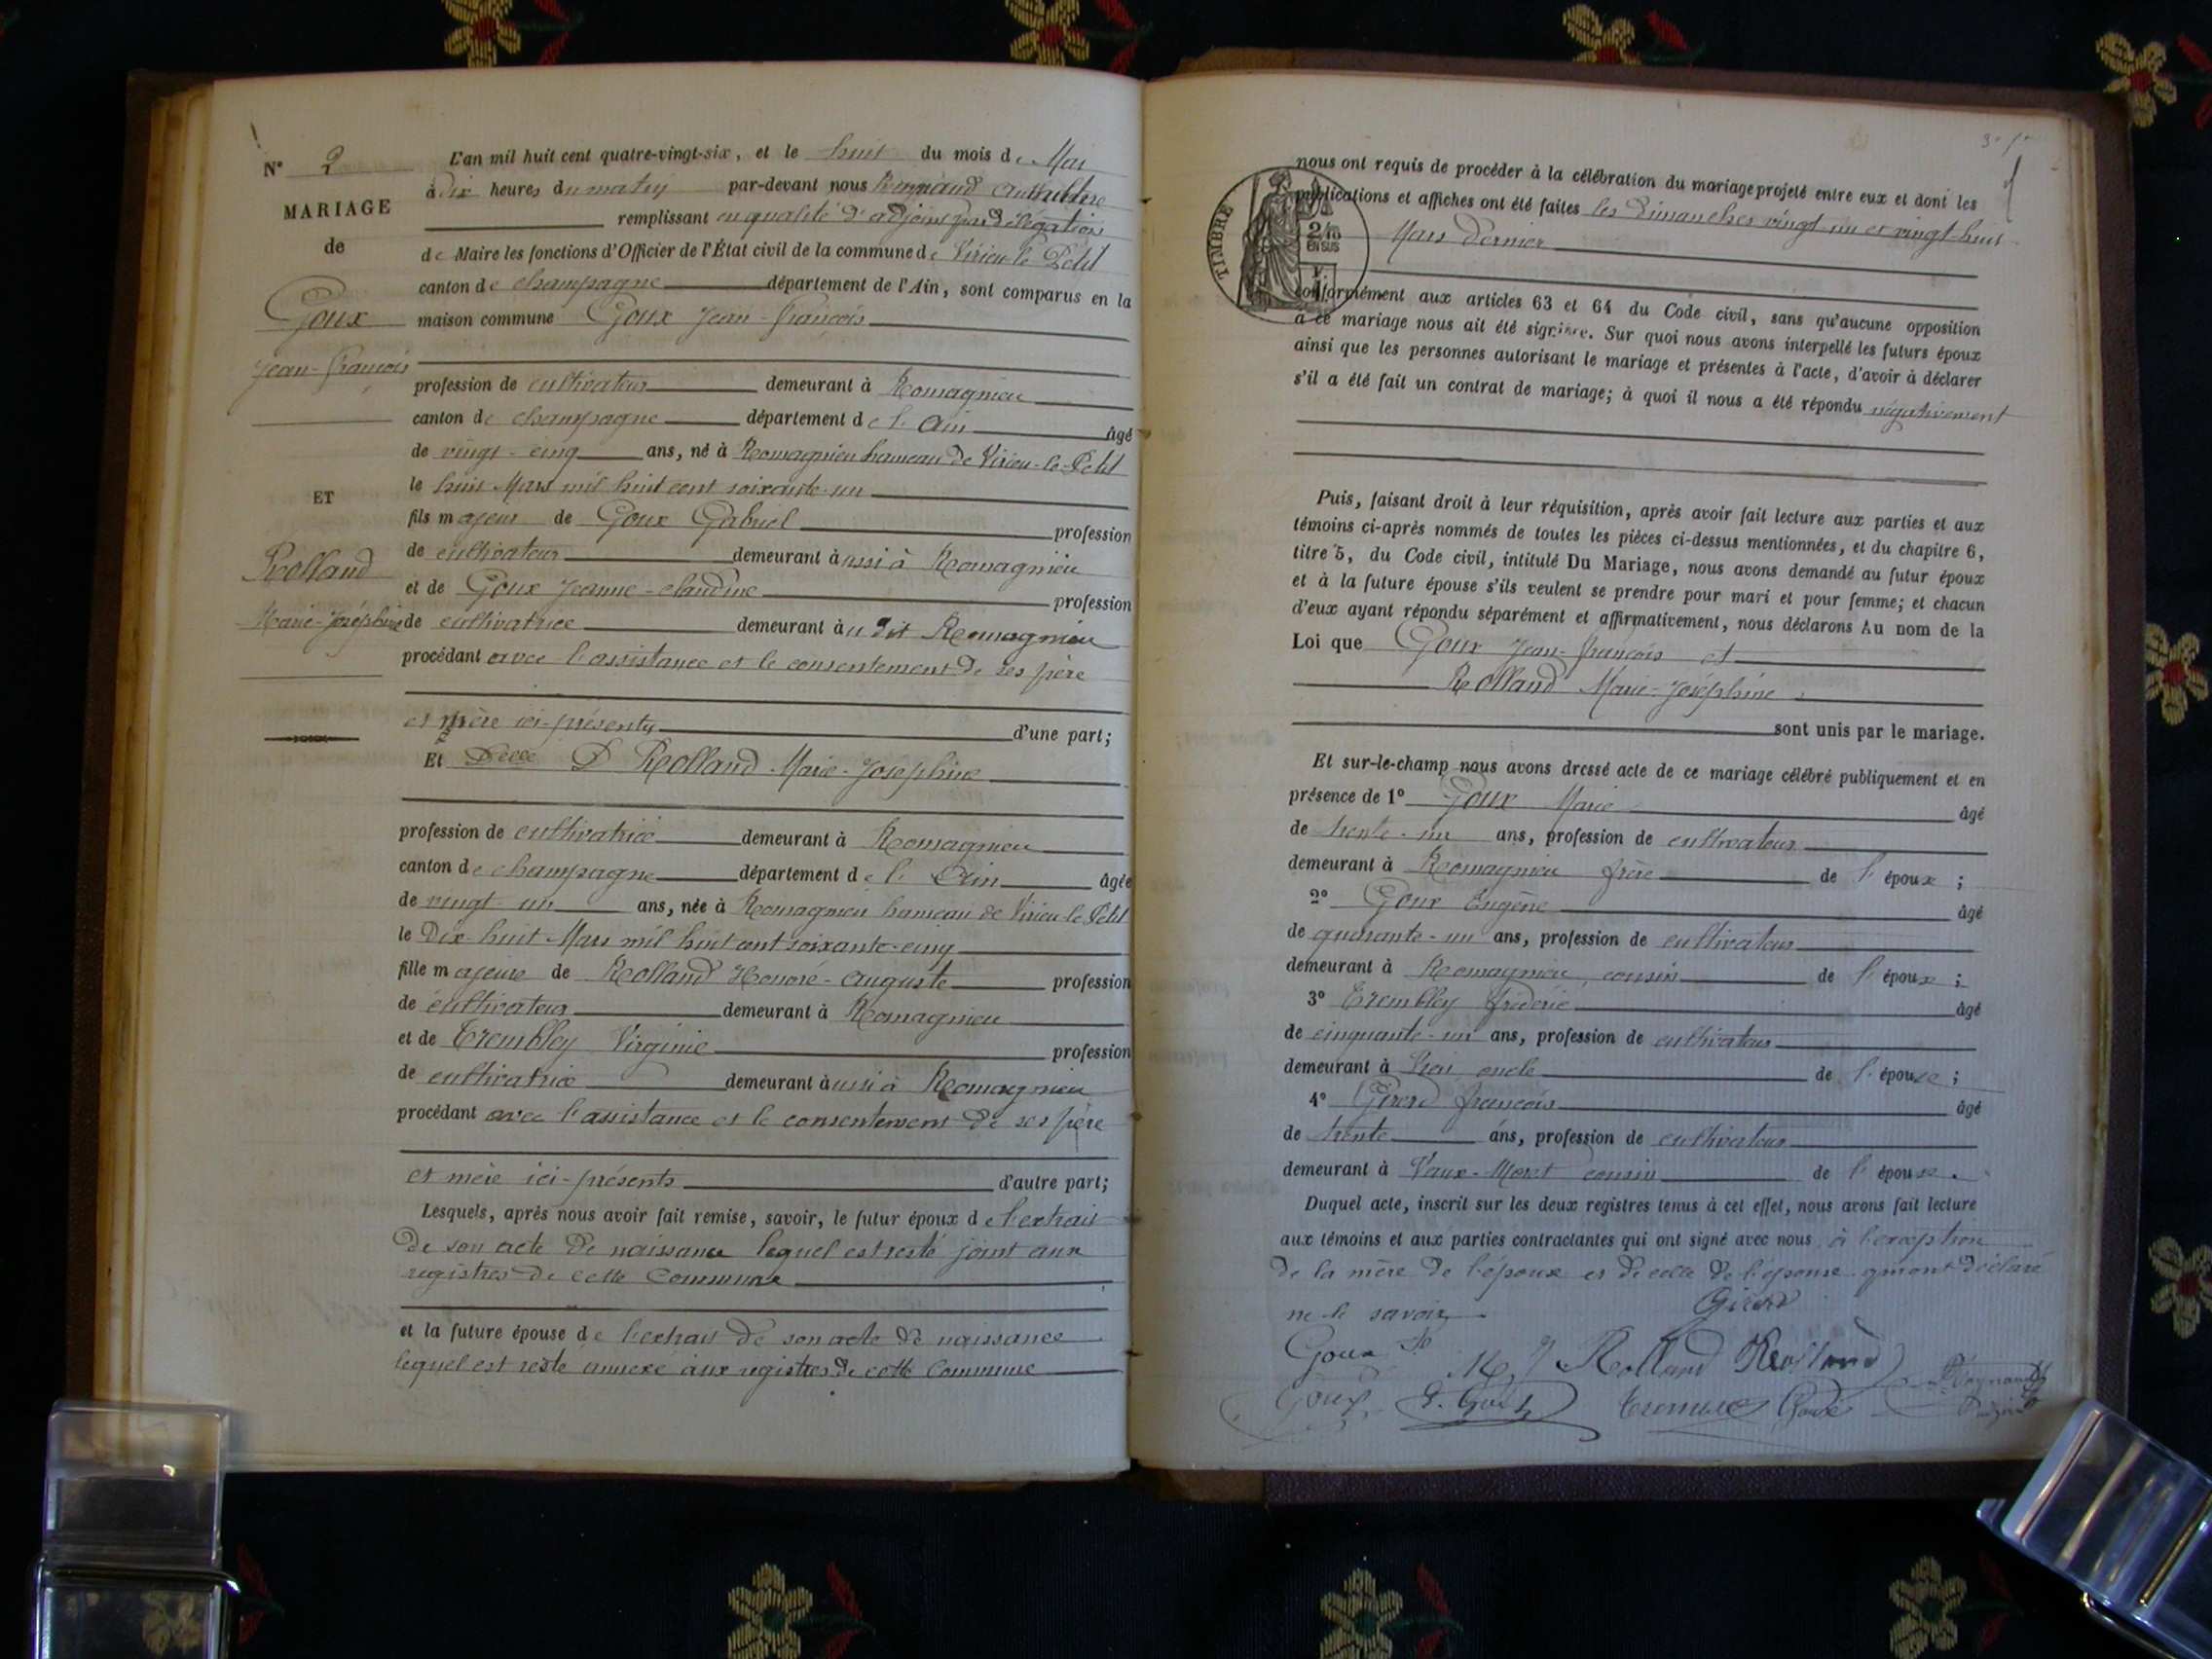 N° 2
MARIAGE
de
Goux
Jean-François
ET
Rolland
Marie-Joséphine
L'an mil huit cent quatre-vingt-six, et le huit du mois de Mai
à dix heures du matin par-devant nous
remplissant en qualité d'adjoint par délégation
de Maire les fonctions d'Officier de l'État civil de la commune de Virieu-le-Petit
canton de champagne département de l'Ain, sont comparus en la
maison commune Goux Jean-François
profession de cultivateur demeurant à Romagnieu
canton de champagne département de l'Ain âgé
de vingt-cinq ans, né à Romagnieu hameau de Virieu-le-Petit
le huit Mars mil huit cent soixante-un
fils majeur de Goux Gabriel profession
de cultivateur demeurant aussi à Romagnieu
et de Goux Jeanne-claudine profession
de cultivatrice demeurant au dit Romagnieu
procédant avec l'assistance et le consentement de ses père
et mère ici-présents d'une part;
Et Delle Rolland Marie-Joséphine
profession de cultivatrice demeurant à Romagnieu
canton de champagne département de l'Ain âgée
de vingt-un ans, née à Romagnieu hameau de Virieu-le-Petit
le Dix-huit Mars mil huit cent soixante-cinq
fille majeure de Rolland Honoré-Auguste profession
de cultivateur demeurant à Romagnieu
et de Trembley Virginie profession
de cultivatrice demeurant aussi à Romagnieu
procédant avec l'assistance et le consentement de ses père
et mère ici-présents d'autre part;
Lesquels, après nous avoir fait remise, savoir, le futur époux de l'extrait
de son acte de naissance lequel est resté joint aux
registres de cette Commune
et la future épouse de l'extrait de son acte de naissance
lequel est resté annexé aux registres de cette Commune
TIMBRE
2/10
EN SUS
nous ont requis de procéder à la célébration du mariage projeté entre eux et dont les
publications et affiches ont été faites les Dimanches vingt-un et vingt-huit
Mars dernier
conformément aux articles 63 et 64 du Code civil, sans qu'aucune opposition
à ce mariage nous ait été signifiée. Sur quoi nous avons interpellé les futurs époux
ainsi que les personnes autorisant le mariage et présentes à l'acte, d'avoir à déclarer
s'il a été fait un contrat de mariage; à quoi il nous a été répondu négativement
Puis, faisant droit à leur réquisition, après avoir fait lecture aux parties et aux
témoins ci-après nommés de toutes les pièces ci-dessus mentionnées, et du chapitre 6,
titre 5, du Code civil, intitulé Du Mariage, nous avons demandé au futur époux
et à la future épouse s'ils veulent se prendre pour mari et pour femme; et chacun
d'eux ayant répondu séparément et affirmativement, nous déclarons Au nom de la
Loi que Goux Jean-François et
Rolland Marie-Joséphine
sont unis par le mariage.
Et sur-le-champ nous avons dressé acte de ce mariage célébré publiquement et en
présence de 1° Goux Marie âgé
de trente-un ans, profession de cultivateur
demeurant à Romagnieu frère de l'époux;
2° Goux Eugène âgé
de quarante-un ans, profession de cultivateur
demeurant à Romagnieu, cousin de l'époux;
3° Trembley Frédéric âgé
de cinquante-un ans, profession de cultivateur
demeurant à oncle de l'épouse;
4° Girerd François âgé
de trente ans, profession de cultivateur
demeurant à Vaux-Moret cousin de l'épouse.
Duquel acte, inscrit sur les deux registres tenus à cet effet, nous avons fait lecture
aux témoins et aux parties contractantes qui ont signé avec nous à l'exception
de la mère de l'époux et de celle de l'épouse qui ont déclaré
ne le savoir
Girerd
Goux
M. J Rolland Rolland
Goux E. Goux